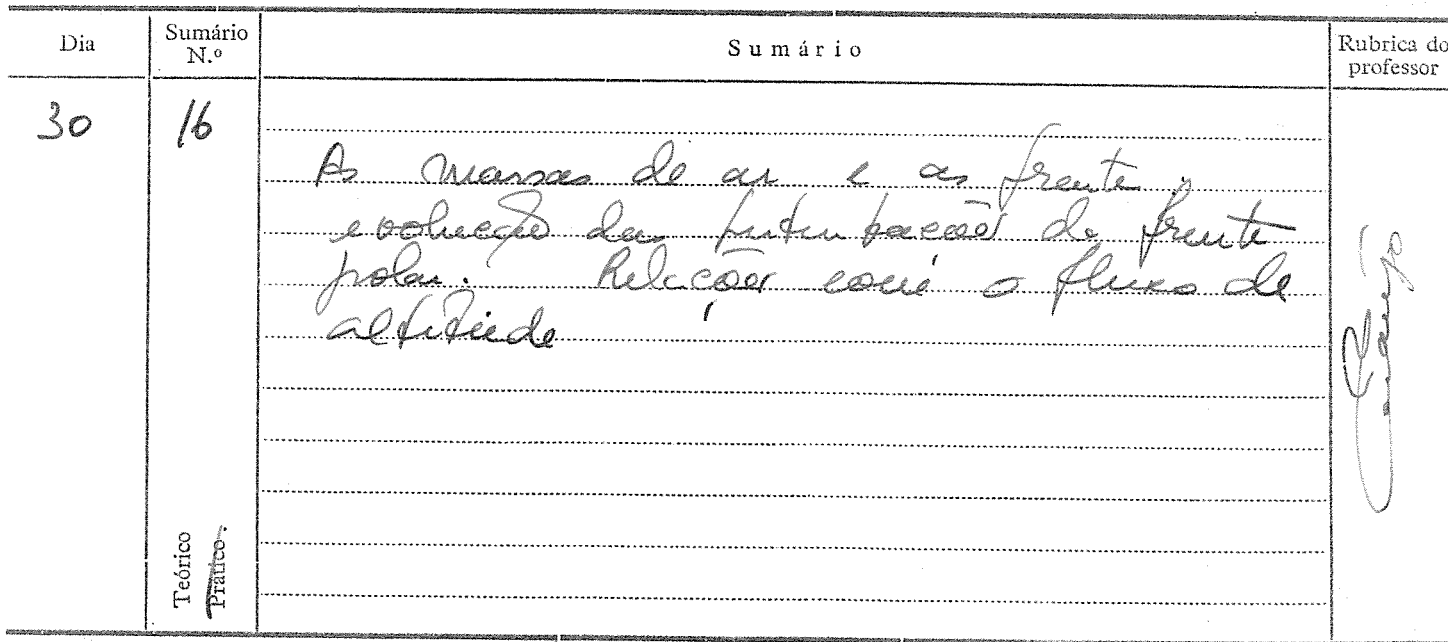 Dia
Sumário N.º
Sumário
Rubrica do professor
30
16
As massas de ar e as frentes;
evolução das perturbações da frente
polar. Relações com o fluxo de
altitude
Teórico
Prático.